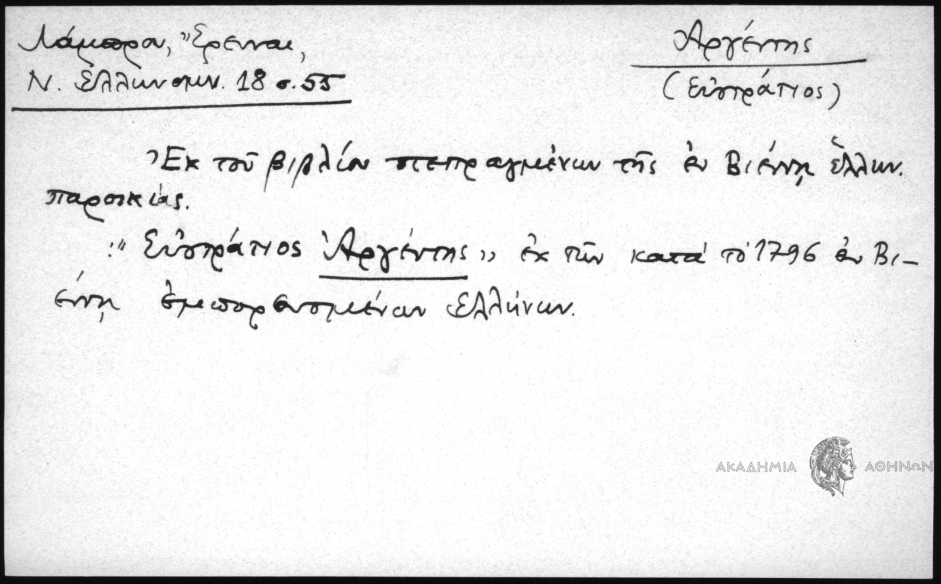 Λάμπρου, Ἔρευναι,
Ν. Ἑλληνομν. 18 σ. 55
Ἀργέντης
(Εὐστράτιος)
Ἐκ τοῦ βιβλίου πεπραγμένων τῆς ἐν Βιέννῃ ἑλλην.
παροικίας.
:"Εὐστράτιος Ἀργέντης" ἐκ τῶν κατά τὸ 1796 ἐν Βι-
έννῃ ἐμπορευομένων Ἑλλήνων.
ΑΚΑΔΗΜΙΑ ΑΘΗΝΩΝ